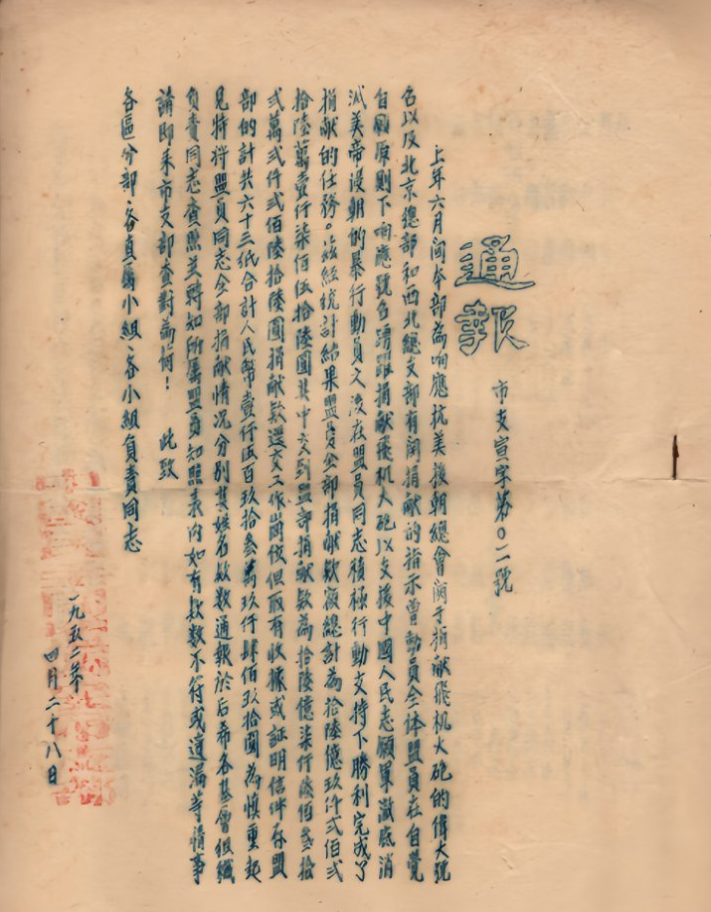 通報
市支宣字第〇二號
上年六月间本部為响應抗美援朝總會関于捐献飛机大砲的偉大號
名以及北京總部和西北總支部有関捐献的指示曾動員全体盟員在自覺
自願原則下响應號名踴躍捐献飛机大砲以支援中國人民志願軍澈底消
滅美帝侵朝的暴行動員之後在盟員同志積極行動支持下勝利完成了
捐献的任務。茲經統計結果盟員全部捐献欵額總計為拾陸億玖仟弍佰弍
拾陸萬壹仟柒佰伍拾陸圓其中交到盟部捐献欵為拾陸億柒仟陸佰叁拾
弍萬弍仟弍佰陸拾陸圓捐献欵逕交工作崗位但取有收據或証明信件存盟
部的計共六十三纸合計人民幣壹仟伍百玖拾叁萬玖仟肆佰玖拾圓為慎重起
見特将盟員同志全部捐献情况分别其姓名欵数通報於后希各基層組織
負責同志查照並轉知所屬盟員知照表内如有欵数不符或遺漏等情事
請即来市支部查對為荷！ 此致
各區分部、各直屬小組、各小組負責同志
一九五二年
四月二十八日